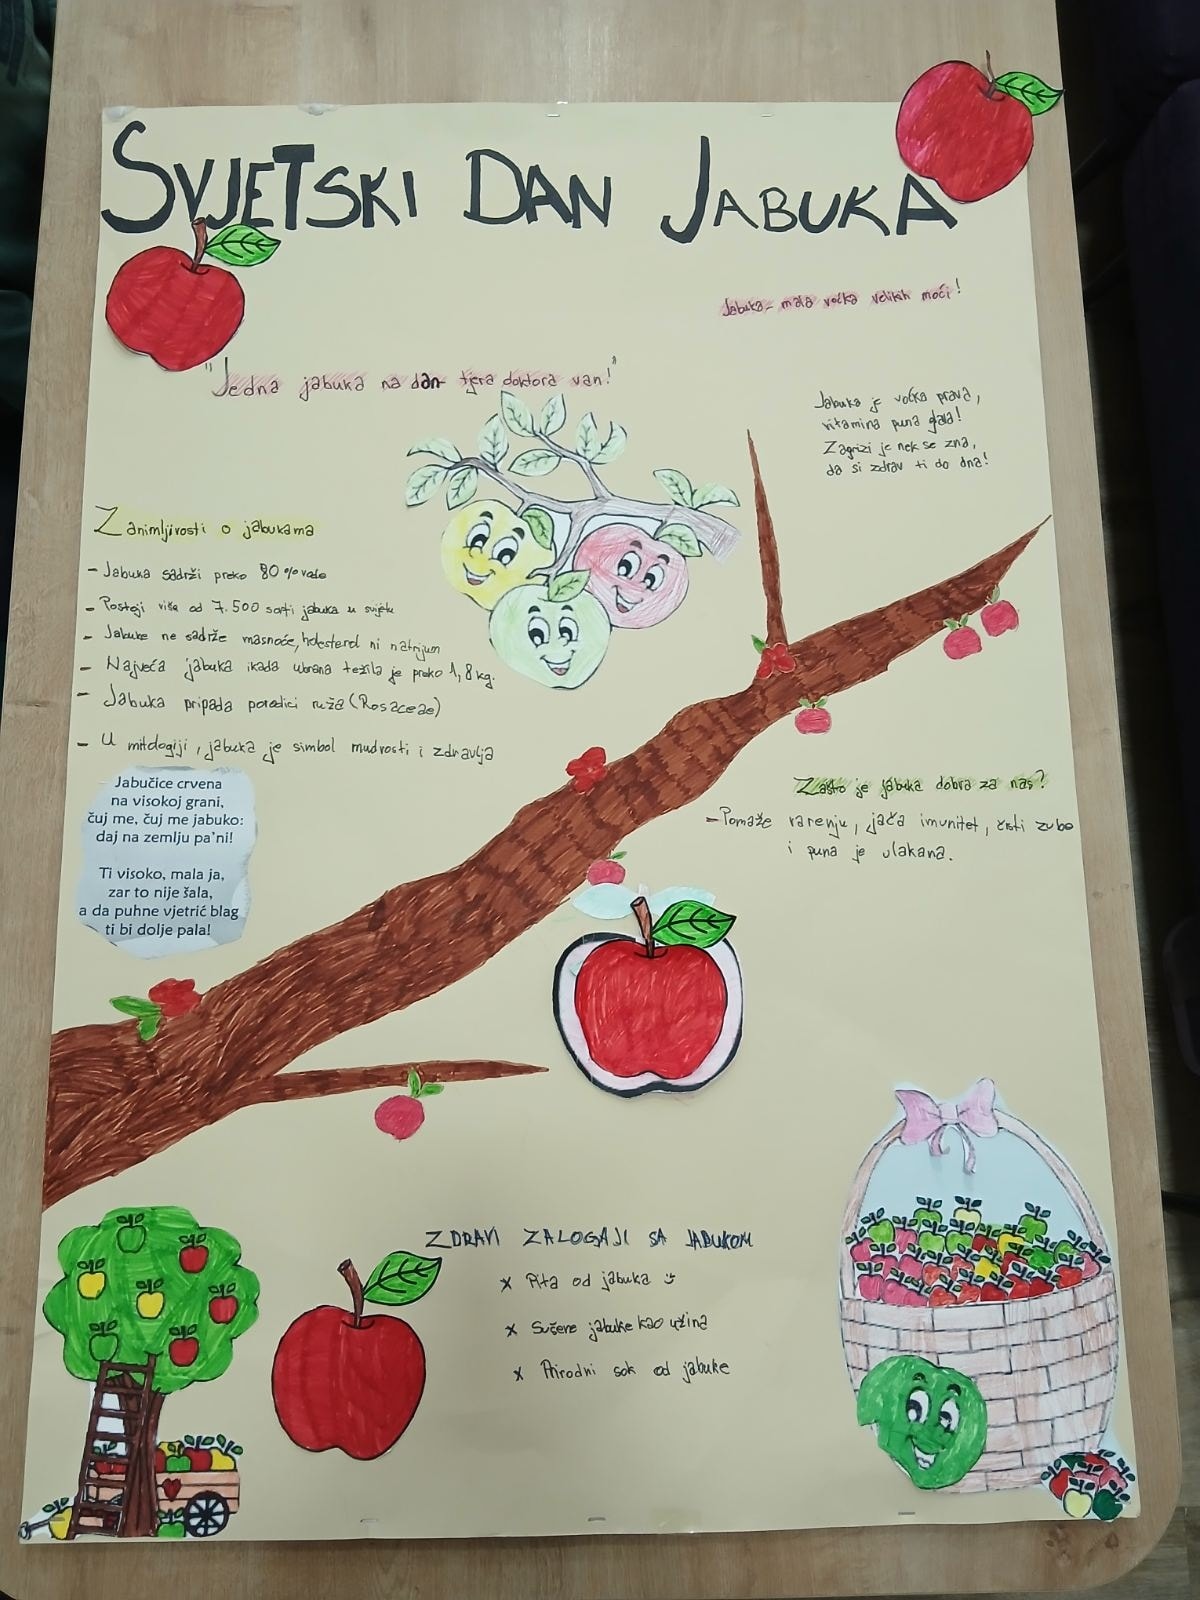 SVJETSKI DAN JABUKA
Jabuka - mala voćka velikih moći!
"Jedna jabuka na dan - tjera doktora van!"
Jabuka je voćka prava,
vitamina puna glava!
Zagrizi je nek se zna,
da si zdrav ti do dna!
Zanimljivosti o jabukama
- Jabuka sadrži preko 80% vode
- Postoji više od 7.500 sorti jabuka u svijetu
- Jabuke ne sadrže masnoće, holesterol ni natrijum
- Najveća jabuka ikada ubrana težila je preko 1,8 kg.
- Jabuka pripada porodici ruža (Rosaceae)
- U mitologiji, jabuka je simbol mudrosti i zdravlja
Jabučice crvena
na visokoj grani,
čuj me, čuj me jabuko:
daj na zemlju pa'ni!
Ti visoko, mala ja,
zar to nije šala,
a da puhne vjetrić blag
ti bi dolje pala!
Zašto je jabuka dobra za nas?
- Pomaže varenju, jača imunitet, čisti zube
i puna je vlakana.
ZDRAVI ZALOGAJI SA JABUKOM
x Pita od jabuka
x Sušene jabuke kao užina
x Prirodni sok od jabuke